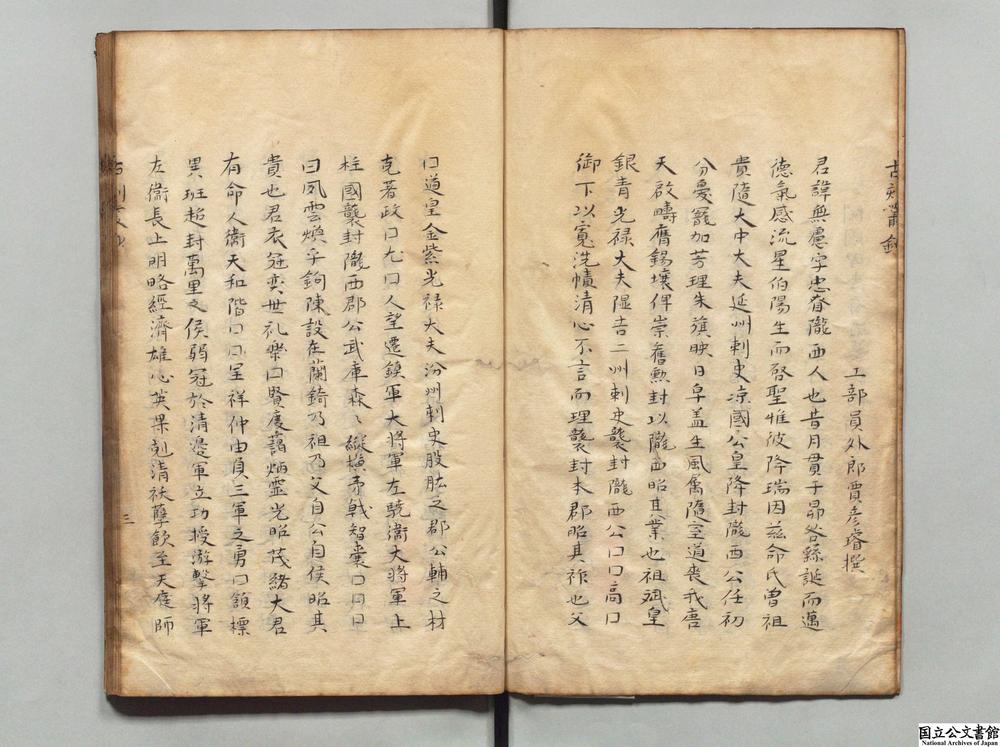 古刻叢鈔
工部員外郎賈彦璿撰
君諱無慮字忠眘隴西人也昔月貫于昴咎繇誕而邁
德氣感流星伯陽生而啓聖惟彼降瑞因茲命氏曽祖
貴隨大中大夫延州刺史凉國公皇降封隴西公任初
分憂寵加芳理朱旟映日皁盖生風属隨室道喪我唐
天啟疇庸錫壤俾崇舊勲封以隴西昭其業也祖斌皇
銀青光禄大夫隰吉二州刺史襲封隴西公口口高口
御下以寛洗幘清心不言而理襲封本郡昭其祚也父
口道皇金紫光禄大夫汾州刺史股肱之郡公輔之材
克著政口允口人望遷鎮軍大將軍左驍衛大將軍上
柱國襲封隴西郡公武庫森〻縱横矛戟智囊口口日
曰夙雲煥乎鉤陳設在蘭錡乃祖乃父自公自侯昭其
貴也君衣冠奕世礼樂口賢慶藹炳靈光昭茂緒大君
有命人衛天和階口口呈祥仲由負三軍之勇口頷標
異班超封萬里之侯弱冠於清邊軍立功授游擊將軍
左衛長上明略經濟雄心英果剋清祅孽飲至天庭師
三